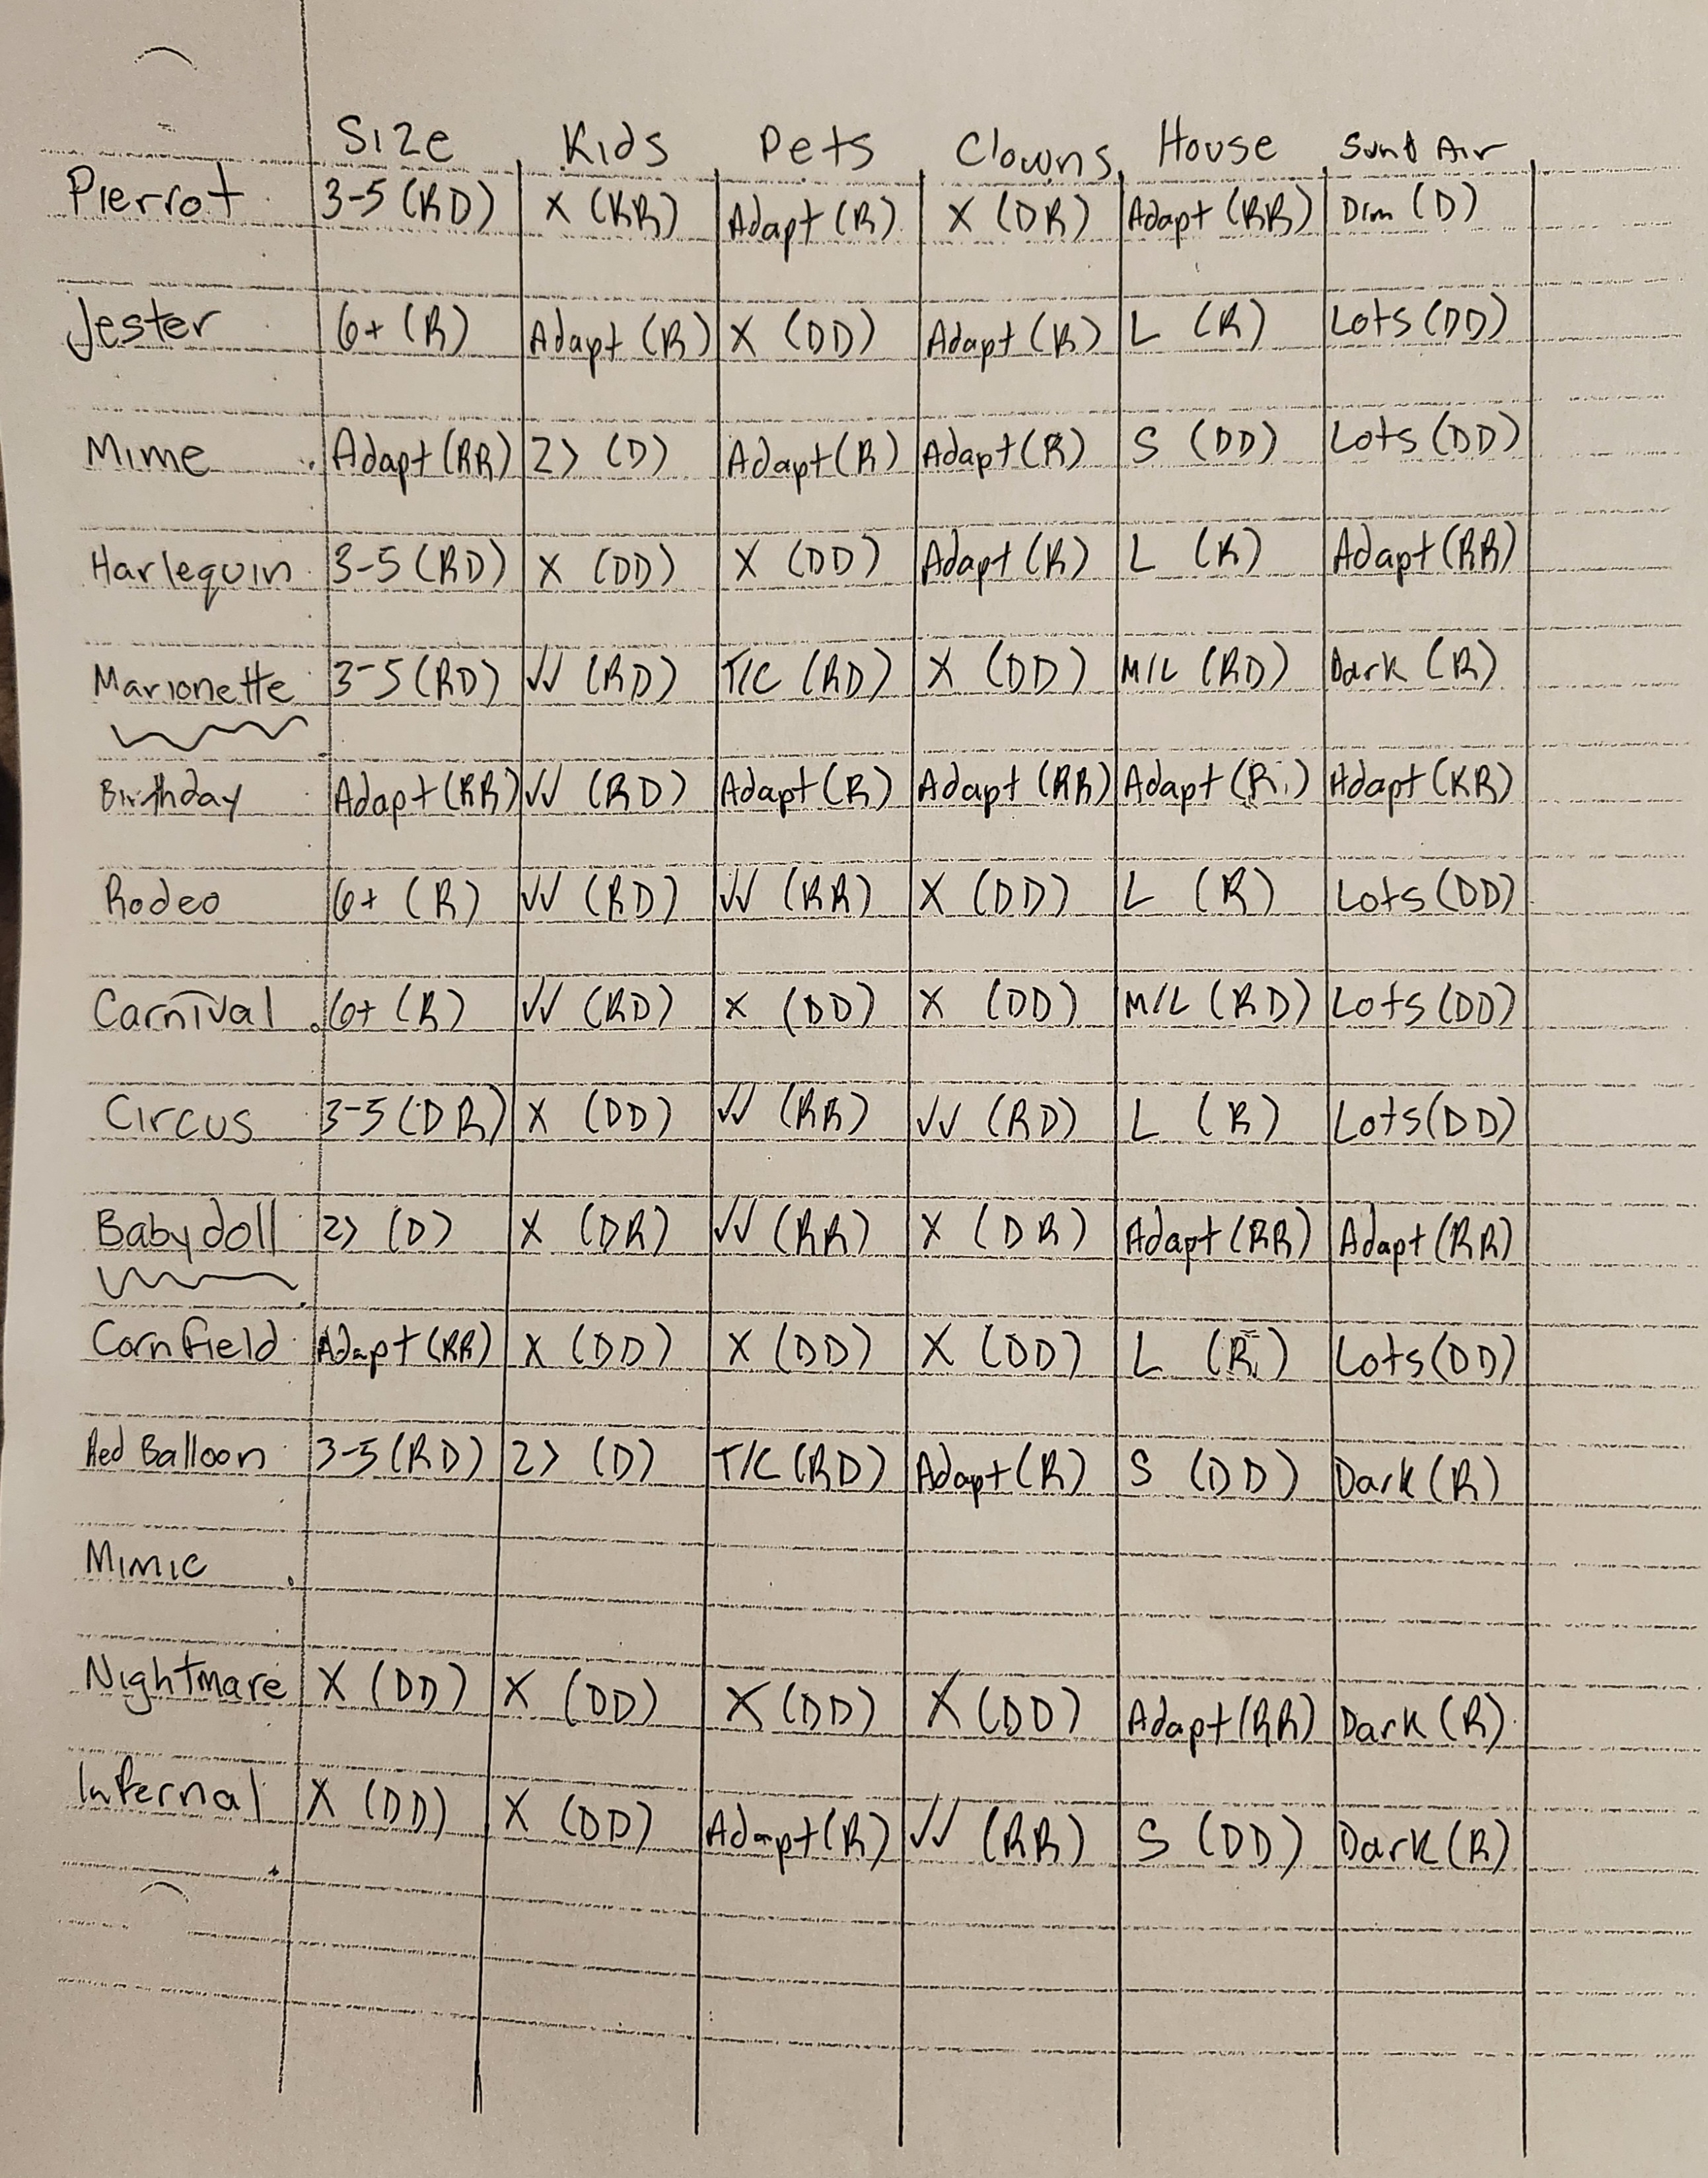 Size Kids Pets Clowns House Sun & Air
Pierrot 3-5 (RD) X (RR) Adapt (R) X (DR) Adapt (RR) Dim (D)
Jester 6+ (R) Adapt (R) X (DD) Adapt (R) L (R) Lots (DD)
Mime Adapt (RR) 2> (D) Adapt (R) Adapt (R) S (DD) Lots (DD)
Harlequin 3-5 (RD) X (DD) X (DD) Adapt (R) L (R) Adapt (RR)
Marionette 3-5 (RD) ✓✓ (RD) T/C (RD) X (DD) M/L (RD) Dark (R)
Birthday Adapt (RR) ✓✓ (RD) Adapt (R) Adapt (RR) Adapt (R) Adapt (RR)
Rodeo 6+ (R) ✓✓ (RD) ✓✓ (RR) X (DD) L (R) Lots (DD)
Carnival 6+ (R) ✓✓ (RD) X (DD) X (DD) M/L (RD) Lots (DD)
Circus 3-5 (DR) X (DD) ✓✓ (RR) ✓✓ (RD) L (R) Lots (DD)
Babydoll 2> (D) X (DR) ✓✓ (RR) X (DR) Adapt (RR) Adapt (RR)
Cornfield Adapt (RR) X (DD) X (DD) X (DD) L (R) Lots (DD)
Red Balloon 3-5 (RD) 2> (D) T/C (RD) Adapt (R) S (DD) Dark (R)
Mimic
Nightmare X (DD) X (DD) X (DD) X (DD) Adapt (RR) Dark (R)
Infernal X (DD) X (DD) Adapt (R) ✓✓ (RR) S (DD) Dark (R)